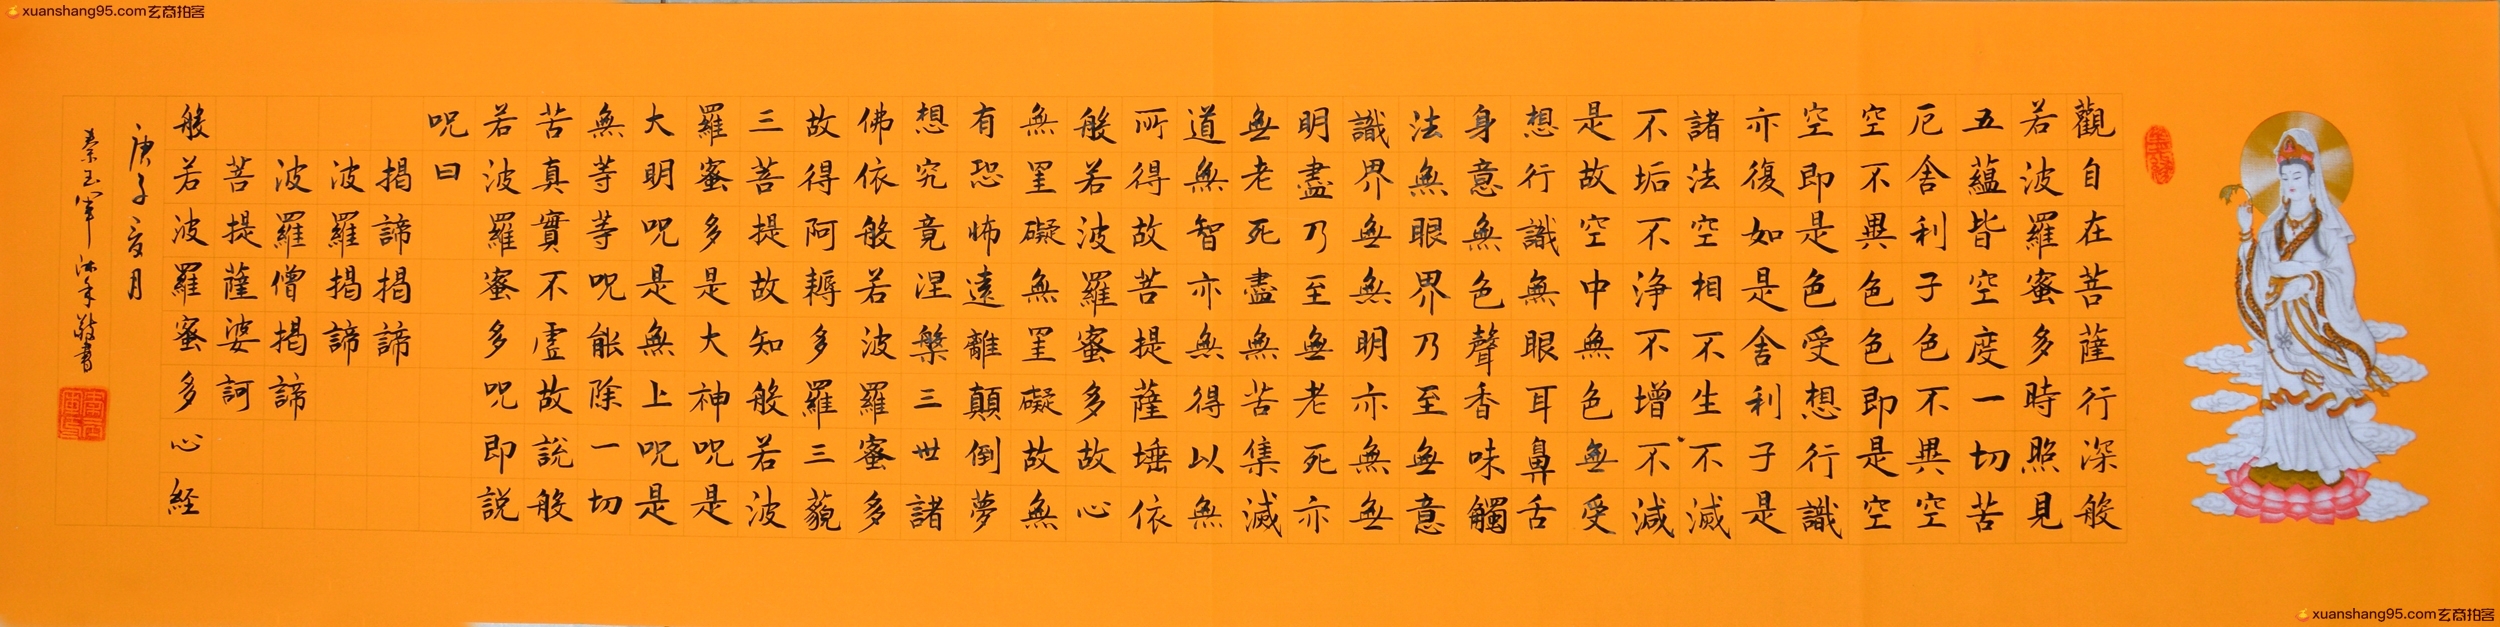 xuanshang95.com玄商拍客
觀自在菩薩行深般
若波羅蜜多時照見
五蘊皆空度一切苦
厄舍利子色不異空
空不異色色即是空
空即是色受想行識
亦復如是舍利子是
諸法空相不生不滅
不垢不淨不增不減
是故空中無色無受
想行識無眼耳鼻舌
身意無色聲香味觸
法無眼界乃至無意
識界無無明亦無無
明盡乃至無老死亦
無老死盡無苦集滅
道無智亦無得以無
所得故菩提薩埵依
般若波羅蜜多故心
無罣礙無罣礙故無
有恐怖遠離顛倒夢
想究竟涅槃三世諸
佛依般若波羅蜜多
故得阿耨多羅三藐
三菩提故知般若波
羅蜜多是大神呪是
大明呪是無上呪是
無等等呪能除一切
苦真實不虛故説般
若波羅蜜多呪即説
呪曰
揭諦揭諦
波羅揭諦
波羅僧揭諦
菩提薩婆訶
般若波羅蜜多心経
庚子夏月
秦玉军沐手敬書
xuanshang95.com玄商拍客